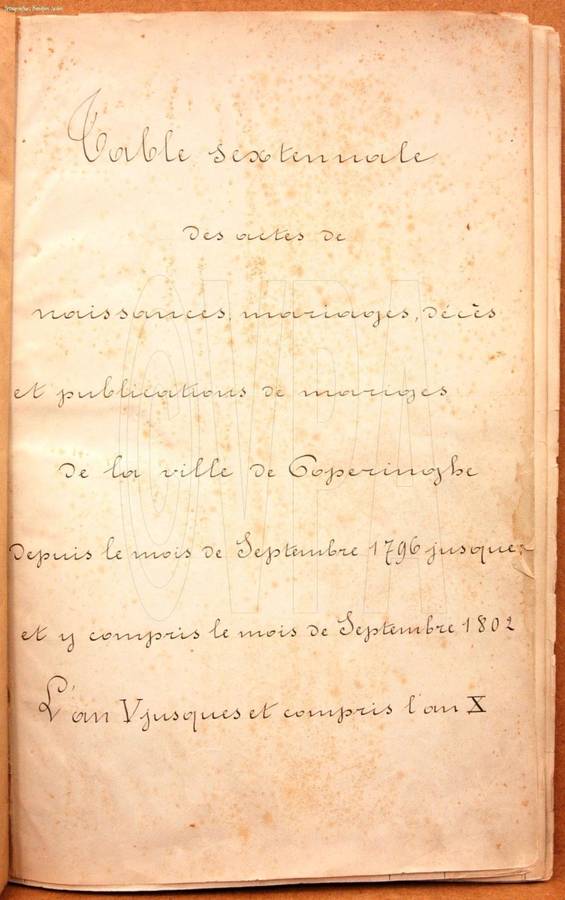 Table sextennale
des actes de
naissances, mariages, décès
et publications de mariges
de la ville de Poperinghe
depuis le mois de Septembre 1796 jusques
et y compris le mois de Septembre 1802
L'an V jusques et compris l'an X
©VPA